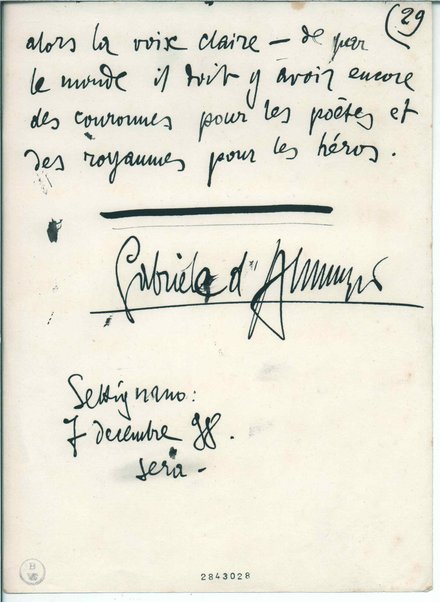 29
alors la voix claire — de par
le monde il doit y avoir encore
des couronnes pour les poètes et
des royaumes pour les héros.
Gabriele d'Annunzio
Settignano:
7 decembre 98.
sera -
B
2843028